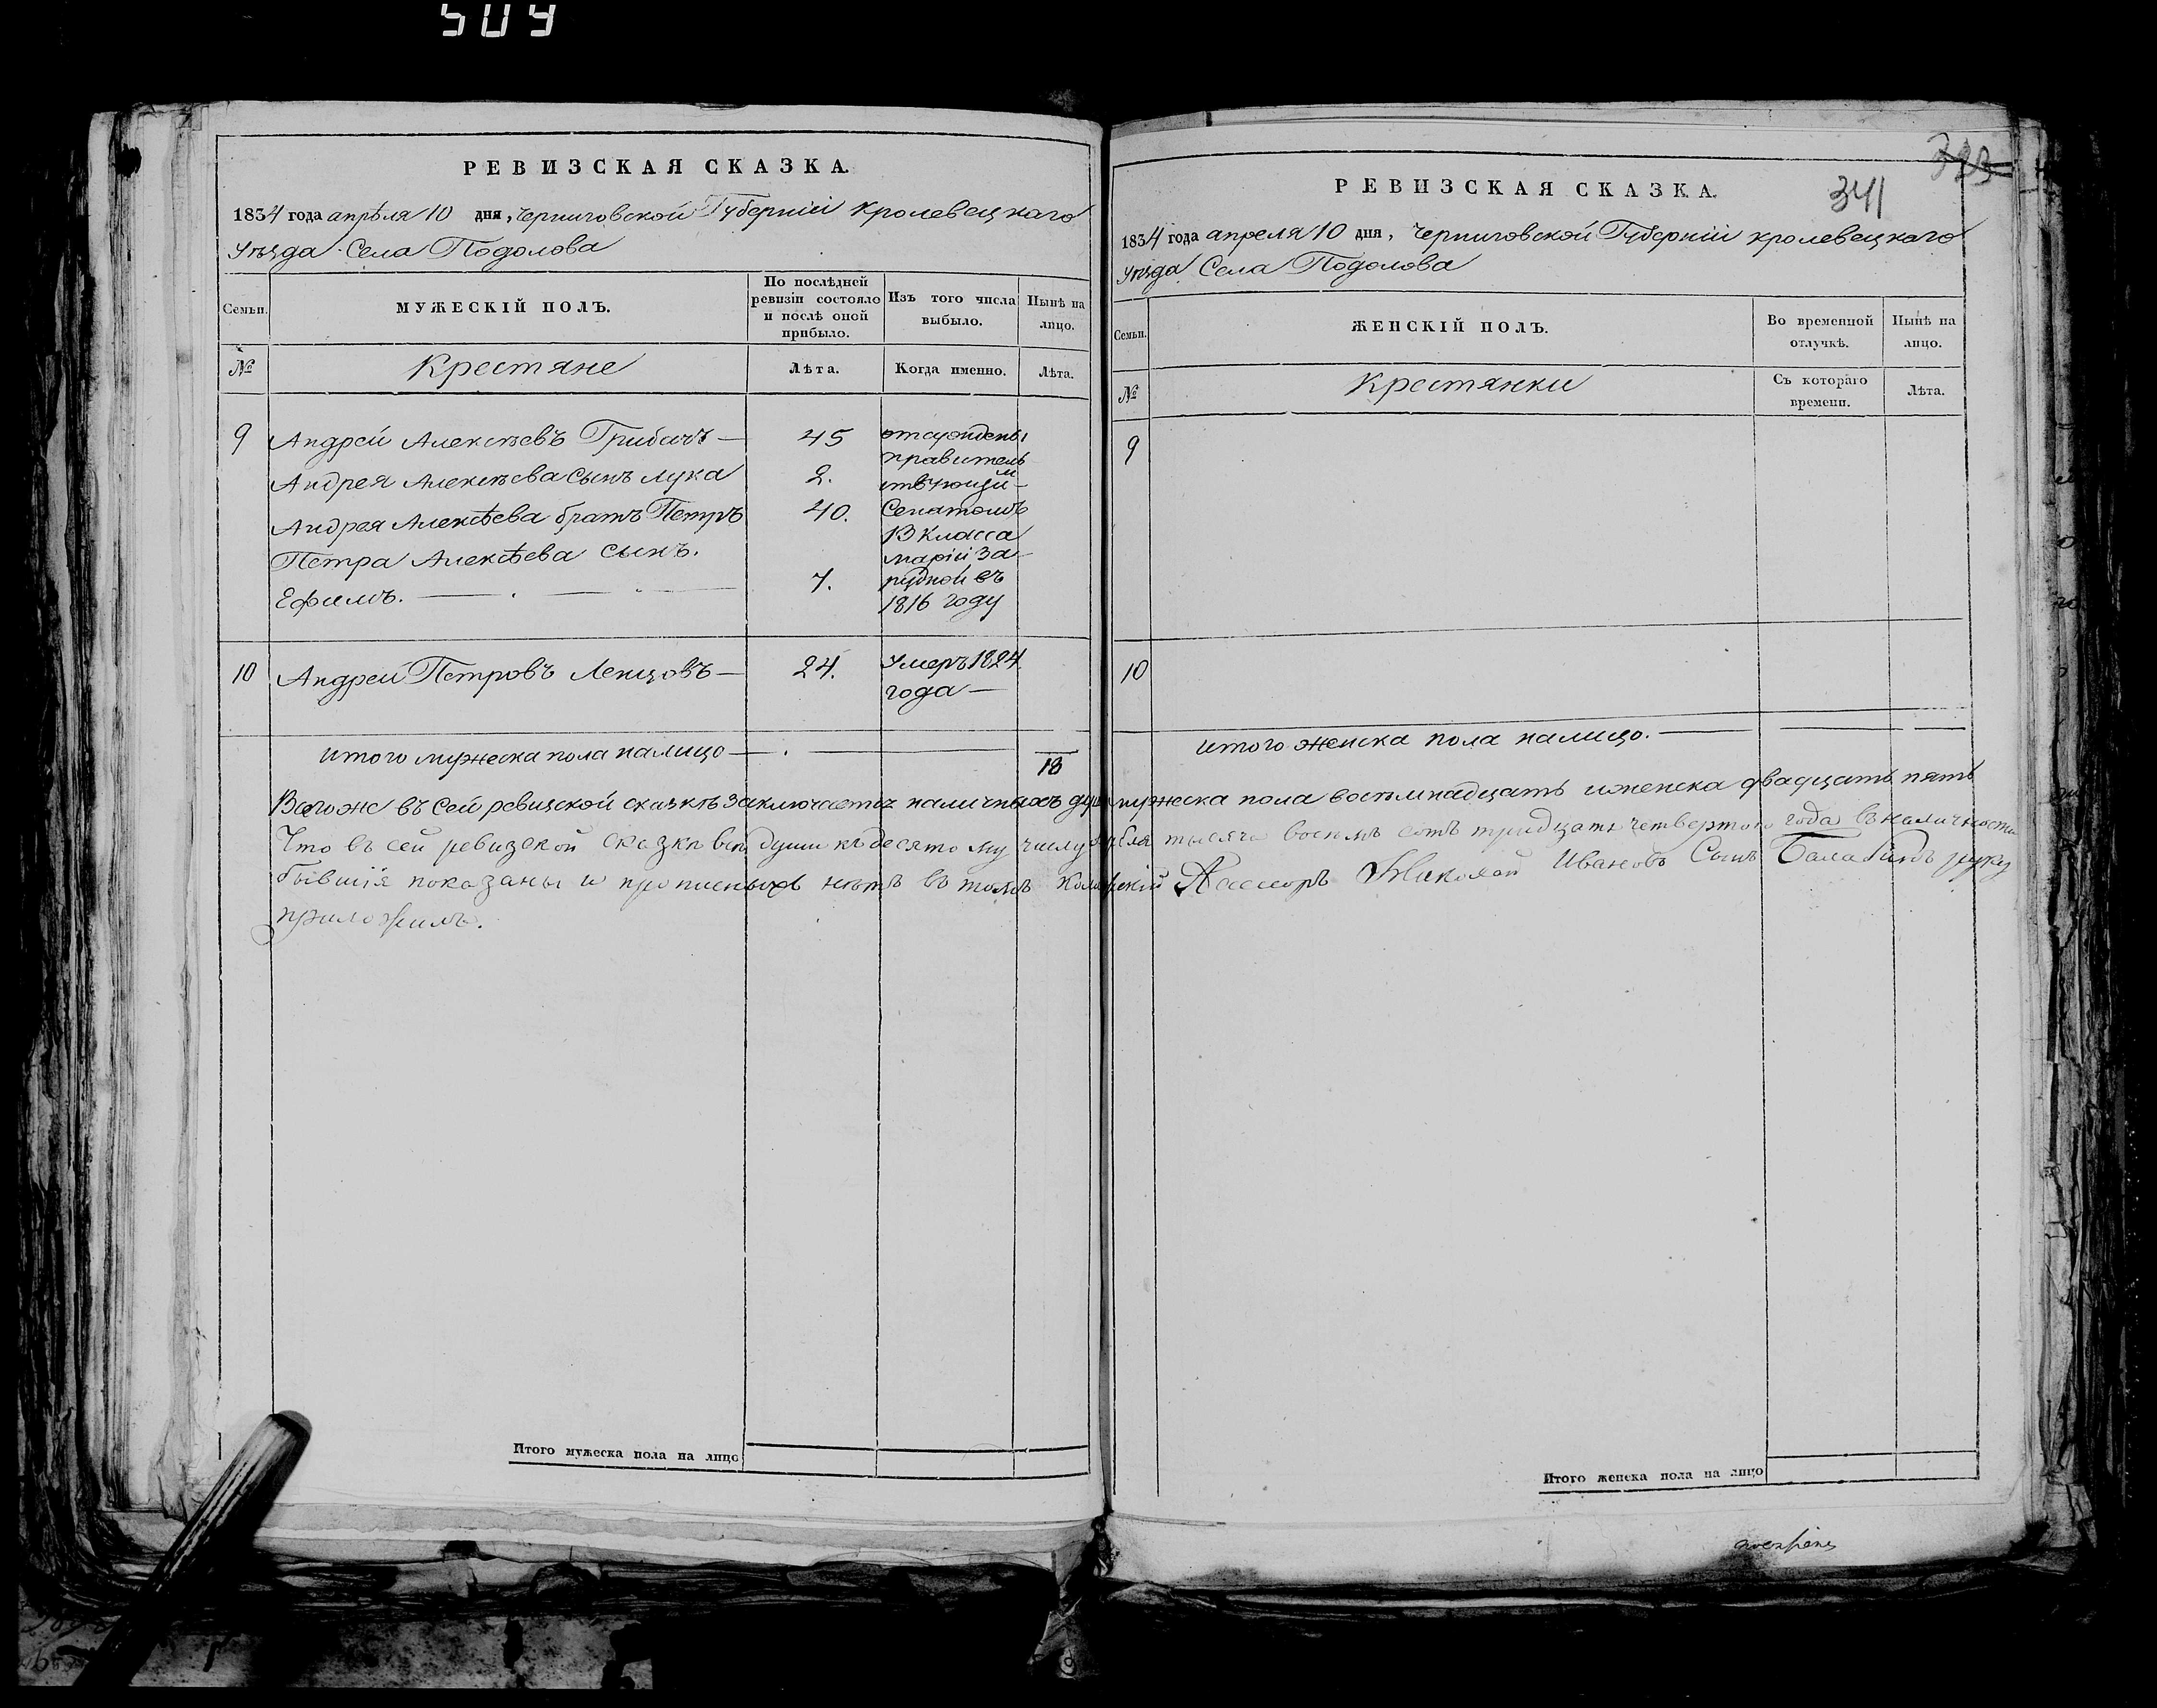 509
РЕВИЗСКАЯ СКАЗКА.
1834 года апрѣля 10 дня, Черниговской Губерніи Кролевецкаго
Уѣзда Села Подолова
Семьи.
МУЖЕСКІЙ ПОЛЪ.
По послѣдней ревизіи состояло и послѣ оной прибыло.
Изъ того числа выбыло.
Нынѣ на лицо.
№
Крестяне
Лѣта.
Когда именно.
Лѣта.
9 Андрей Алексѣевъ Грибачъ — 45
Андрея Алексѣева сынъ Лука 2.
Андрея Алексѣева братъ Петръ 40.
Петра Алексѣева сынъ.
Ефимъ. — 7.
отсуждены
правитель
ствующим
Сенатомъ
13 Класса
Маріи За-
рудной въ
1816 году
10 Андрей Петровъ Ленцовъ — 24. Умеръ 1824
года —
Итого мужеска пола налицо — 18
РЕВИЗСКАЯ СКАЗКА.
333
341
1834 года апреля 10 дня, Черниговской Губерніи Кролевецкаго
Уѣзда Села Подолова
Семьи.
ЖЕНСКІЙ ПОЛЪ.
Во временной отлучкѣ.
Нынѣ на лицо.
№
Крестянки
Съ котораго времени.
Лѣта.
9
10
Итого женска пола налицо. —
Всего же въ сей ревизской сказкѣ заключается наличныхъ душ мужеска пола восемнадцать и женска двадцать пять
Что въ сей ревизской сказки все души къ десятому числу апреля тысяча восемь сотъ тридцать четвертого года въ наличности
бывшія показаны и прописныхъ нѣтъ въ томъ Колежскій Ассесоръ Николай Ивановъ Сынъ Балабинъ руку
приложилъ.
Итого мужеска пола на лицо
Итого женска пола на лицо